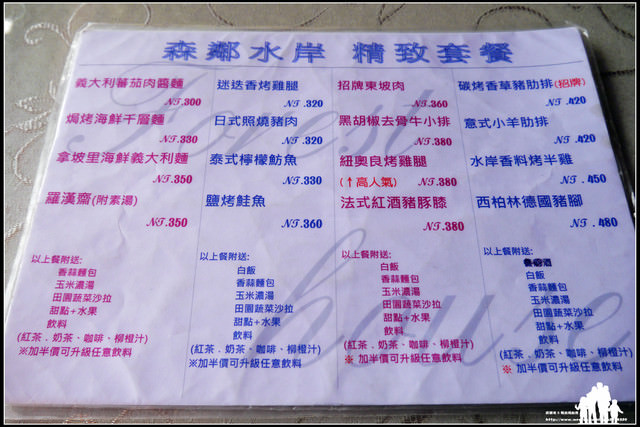 森鄰水岸 精致套餐
義大利蕃茄肉醬麵
NT.300
焗烤海鮮千層麵
NT.330
拿坡里海鮮義大利麵
NT.350
羅漢齋(附素湯)
NT.350
以上餐附送:
香蒜麵包
玉米濃湯
田園蔬菜沙拉
甜點+水果
飲料
(紅茶．奶茶、咖啡、柳橙汁)
※加半價可升級任意飲料
迷迭香烤雞腿
NT .320
日式照燒豬肉
NT .320
泰式檸檬魴魚
NT.330
鹽烤鮭魚
NT.360
以上餐附送:
白飯
香蒜麵包
玉米濃湯
田園蔬菜沙拉
甜點+水果
飲料
(紅茶．奶茶、咖啡、柳橙汁)
※加半價可升級任意飲料
招牌東坡肉
NT.360
黑胡椒去骨牛小排
NT.380
紐奧良烤雞腿
(↑高人氣) NT.380
法式紅酒豬豚膝
NT.380
以上餐附送:
白飯
香蒜麵包
玉米濃湯
田園蔬菜沙拉
甜點+水果
飲料
(紅茶．奶茶、咖啡、柳橙汁)
※ 加半價可升級任意飲料
碳烤香草豬肋排(招牌)
NT .420
意式小羊肋排
NT .420
水岸香料烤半雞
NT . 450
西柏林德國豬腳
NT . 480
以上餐附送:
白飯
香蒜麵包
玉米濃湯
田園蔬菜沙拉
甜點+水果
飲料
(紅茶．奶茶、咖啡、柳橙汁)
※ 加半價可升級任意飲料
Forest
house